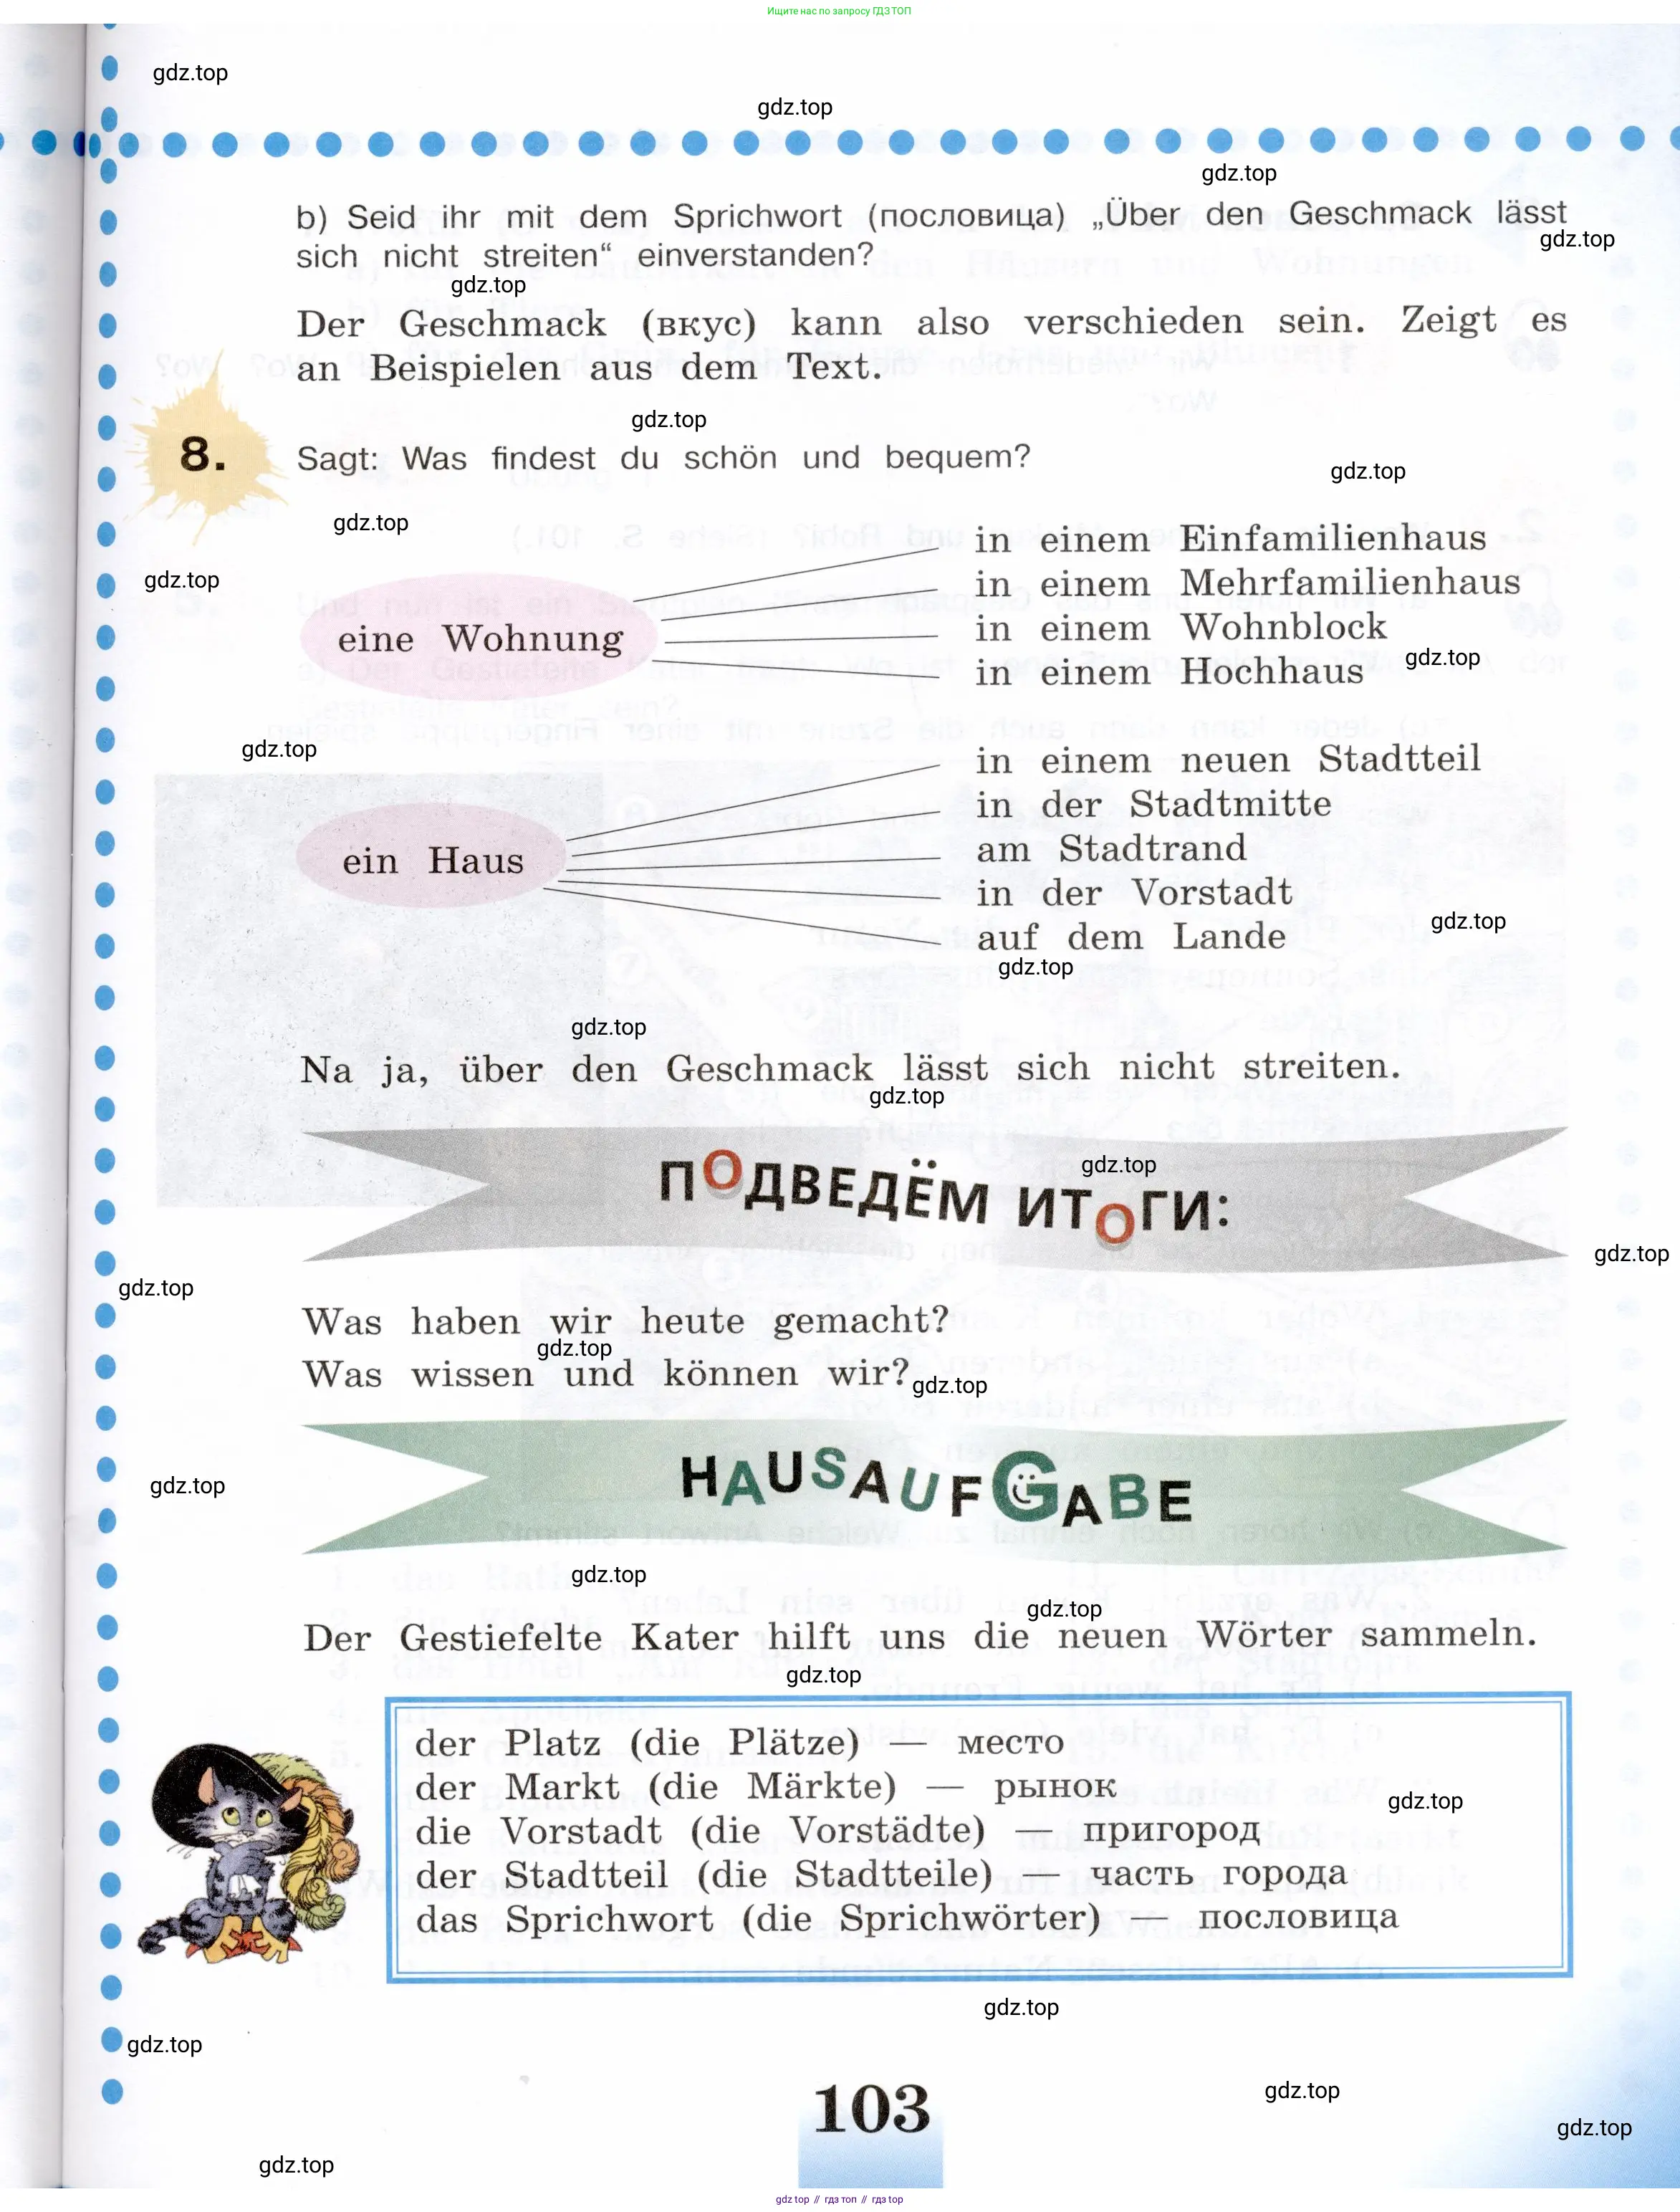 Ищите нас по запросу ГДЗ ТОП
gdz.top
gdz.top
gdz.top
b) Seid ihr mit dem Sprichwort (пословица) „Über den Geschmack lässt
gdz.top
sich nicht streiten“ einverstanden?
gdz.top
Der Geschmack (вкус) kann also verschieden sein. Zeigt es
an Beispielen aus dem Text.
gdz.top
8. Sagt: Was findest du schön und bequem?
gdz.top
gdz.top
in einem Einfamilienhaus
gdz.top
in einem Mehrfamilienhaus
eine Wohnung
in einem Wohnblock
gdz.top
in einem Hochhaus
gdz.top
in einem neuen Stadtteil
in der Stadtmitte
ein Haus
am Stadtrand
in der Vorstadt
gdz.top
auf dem Lande
gdz.top
gdz.top
Na ja, über den Geschmack lässt sich nicht streiten.
gdz.top
gdz.top
ПОДВЕДЁМ ИТОГИ:
gdz.top
gdz.top
Was haben wir heute gemacht?
gdz.top
Was wissen und können wir?
gdz.top
gdz.top
HAUSAUFGABE
gdz.top
gdz.top
Der Gestiefelte Kater hilft uns die neuen Wörter sammeln.
gdz.top
der Platz (die Plätze) — место
der Markt (die Märkte) — рынок
gdz.top
die Vorstadt (die Vorstädte) — пригород
der Stadtteil (die Stadtteile) — часть города
das Sprichwort (die Sprichwörter) — пословица
gdz.top
gdz.top
gdz.top
103
gdz.top
gdz.top
gdz.top // гдз топ // гдз top